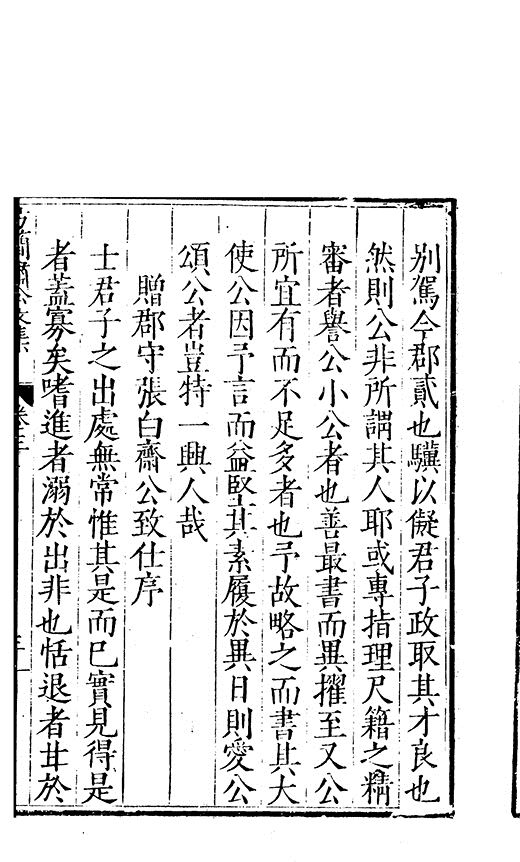 别駕今郡貳也驥以儗君子政取其才良也
然則公非所謂其人耶或專指理尺籍之精
審者譽公小公者也善最書而異擢至又公
所宜有而不足多者也予故略之而書其大
使公因予言而益堅其素履於異日則愛公
頌公者豈特一輿人哉
贈郡守張白齋公致仕序
士君子之出處無常惟其是而已實見得是
者蓋寡矣嗜進者溺於出非也恬退者甘於
簡肅公文集 卷三